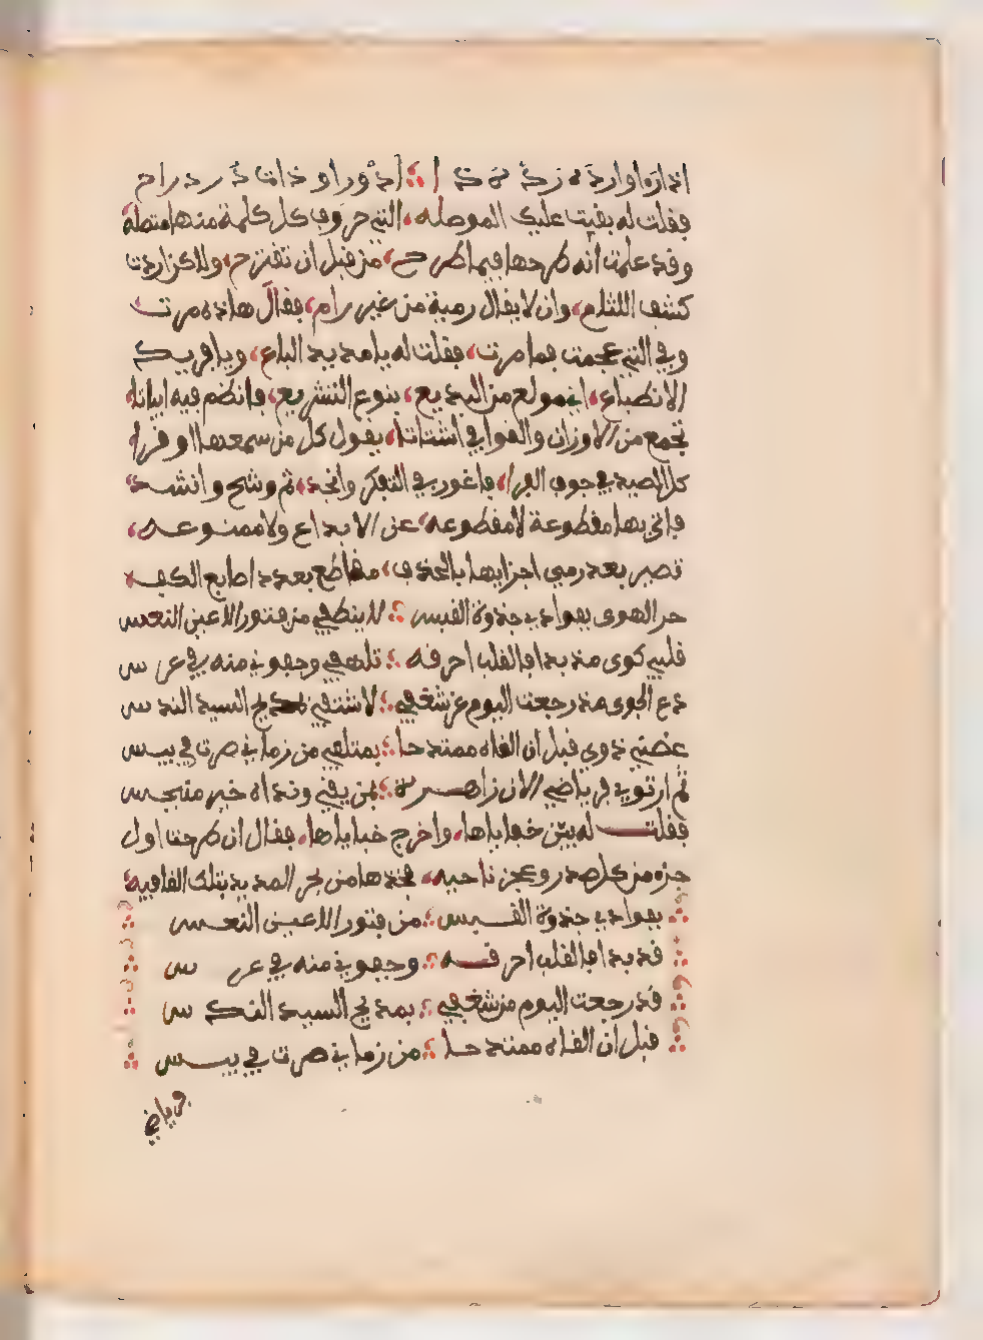 فقلت له بقيت عليك الموصله، التي حروف كل كلمة منها متصله
وقد علمت أنه طرحها فيما طرح، من قبل ان تقترح، ولاكن اردت
كشف اللثام، وان لا يقال رمية من غير رام، فقال هاذه مرت
وفي التي عجمت فما مرت، فقلت له يا مديد الباع، ويا فريد
الانطباع، اني مولع من البديع، بنوع التشريع، فانظم فيه ابياتا،
تجمع من الاوزان والقوافي اشتاتا، يقول كل من سمعها او قرا،
كل الصيد في جوف الفرا، فاغور في التفكر وانجد، ثم وشح وانشد،
فاتى بها مقطوعة لا مقطوعه، عن الابداع ولا ممنوعه،
تصير بعد رمي اجزايها بالحذف، مقاطع بعدد اصابع الكف،
حر الهوى بفوادي جذوة القبس ؛ لا ينطفي من فتور الاعين النعس
قلبي كوى مذ بدا فالقلب احرقه ؛ تلهفي وجفوني منه في عرس
دع الجوى قد رجعت اليوم عن شغفي ؛ لاشتفي بمديح السيد الندس
غصني ذوى قبل ان القاه ممتدحا ؛ بمتلفي من زماني صرت في يبس
ثم ارتوى فرياضي الان زاهرة ؛ بمن يفي ونداه خير منبجس
فقلت له بيّن خفاياها، واخرج خباياها، فقال ان طرحت اول
جزء من كل صدر وعجز ناحيه، فخذها من بحر المديد بتلك القافيه،
بفوادي جذوة القبس ؛ من فتور الاعين النعس
قد بدا فالقلب احرقه ؛ وجفوني منه في عرس
قد رجعت اليوم من شغفي ؛ بمديح السيد الندس
قبل ان القاه ممتدحا ؛ من زماني صرت في يبس
فرياضي